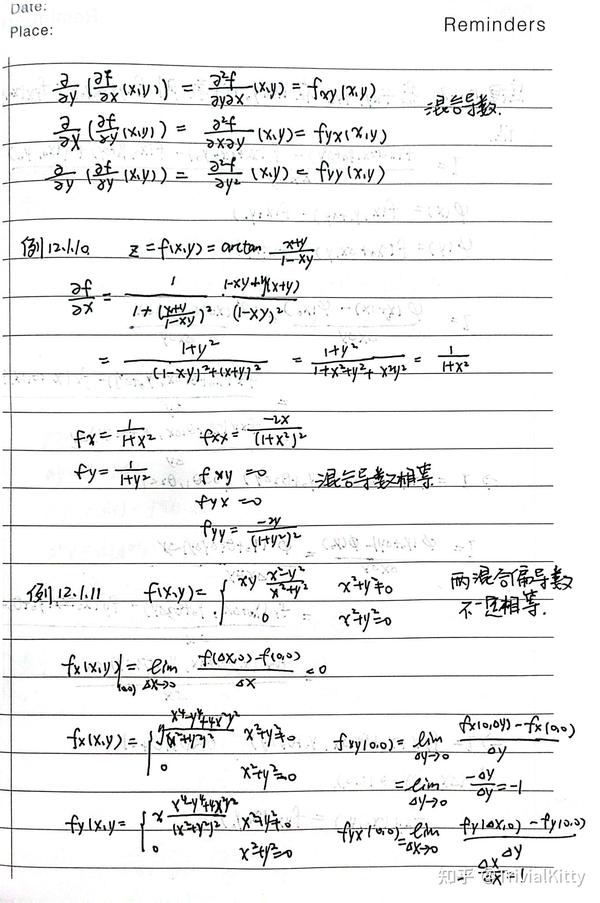 Date:
Place:
Reminders
∂/∂y (∂f/∂x (x,y)) = ∂²f/∂y∂x (x,y) = fxy(x,y)
混合导数.
∂/∂x (∂f/∂y (x,y)) = ∂²f/∂x∂y (x,y) = fyx(x,y)
∂/∂y (∂f/∂y (x,y)) = ∂²f/∂y² (x,y) = fyy(x,y)
例12.1.10. z = f(x,y) = arctan (x+y)/(1-xy)
∂f/∂x = 1/(1+((x+y)/(1-xy))²) · (1-xy+y(x+y))/(1-xy)²
= (1+y²)/((1-xy)²+(x+y)²) = (1+y²)/(1+x²+y²+x²y²) = 1/(1+x²)
fx = 1/(1+x²) fxx = -2x/(1+x²)²
fy = 1/(1+y²) fxy = 0 混合导数相等
fyx = 0
fyy = -2y/(1+y²)²
例12.1.11 f(x,y) = { xy (x²-y²)/(x²+y²) x²+y²≠0 两混合偏导数
0 x²+y²=0 不一定相等.
fx(x,y)|(0,0) = lim Δx→0 (f(Δx,0)-f(0,0))/Δx = 0
fx(x,y) = { y (x⁴-y⁴+4x²y²)/(x²+y²)² x²+y²≠0 fxy(0,0) = lim Δy→0 (fx(0,Δy)-fx(0,0))/Δy
0 x²+y²=0 = lim Δy→0 -Δy/Δy = -1
fy(x,y) = { x (x⁴-y⁴+4x²y²)/(x²+y²)² x²+y²≠0 fyx(0,0) = lim Δx→0 (fy(Δx,0)-fy(0,0))/Δy
0 x²+y²=0 Δx/Δx = 1
知乎 @TrivialKitty